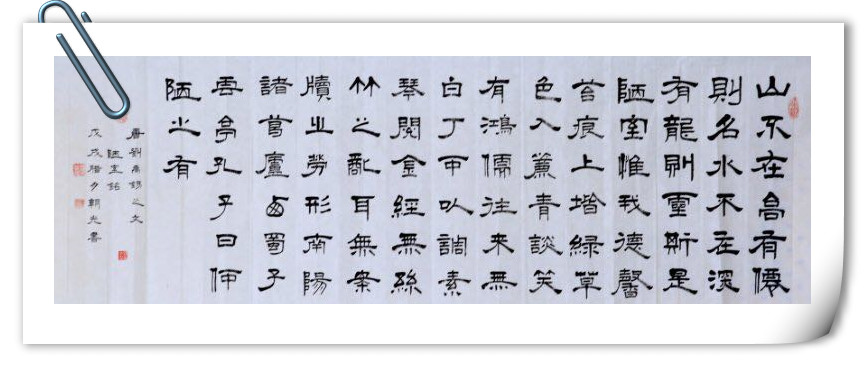 山不在高有僊
則名水不在深
有龍則靈斯是
陋室惟我德馨
苔痕上堦綠草
色入簾青談笑
有鴻儒往來無
白丁可以調素
琴閱金經無絲
竹之亂耳無案
牘之勞形南陽
諸葛廬西蜀子
雲亭孔子曰何
陋之有
唐劉禹錫之文
陋室銘
戊戌腊夕朝光書